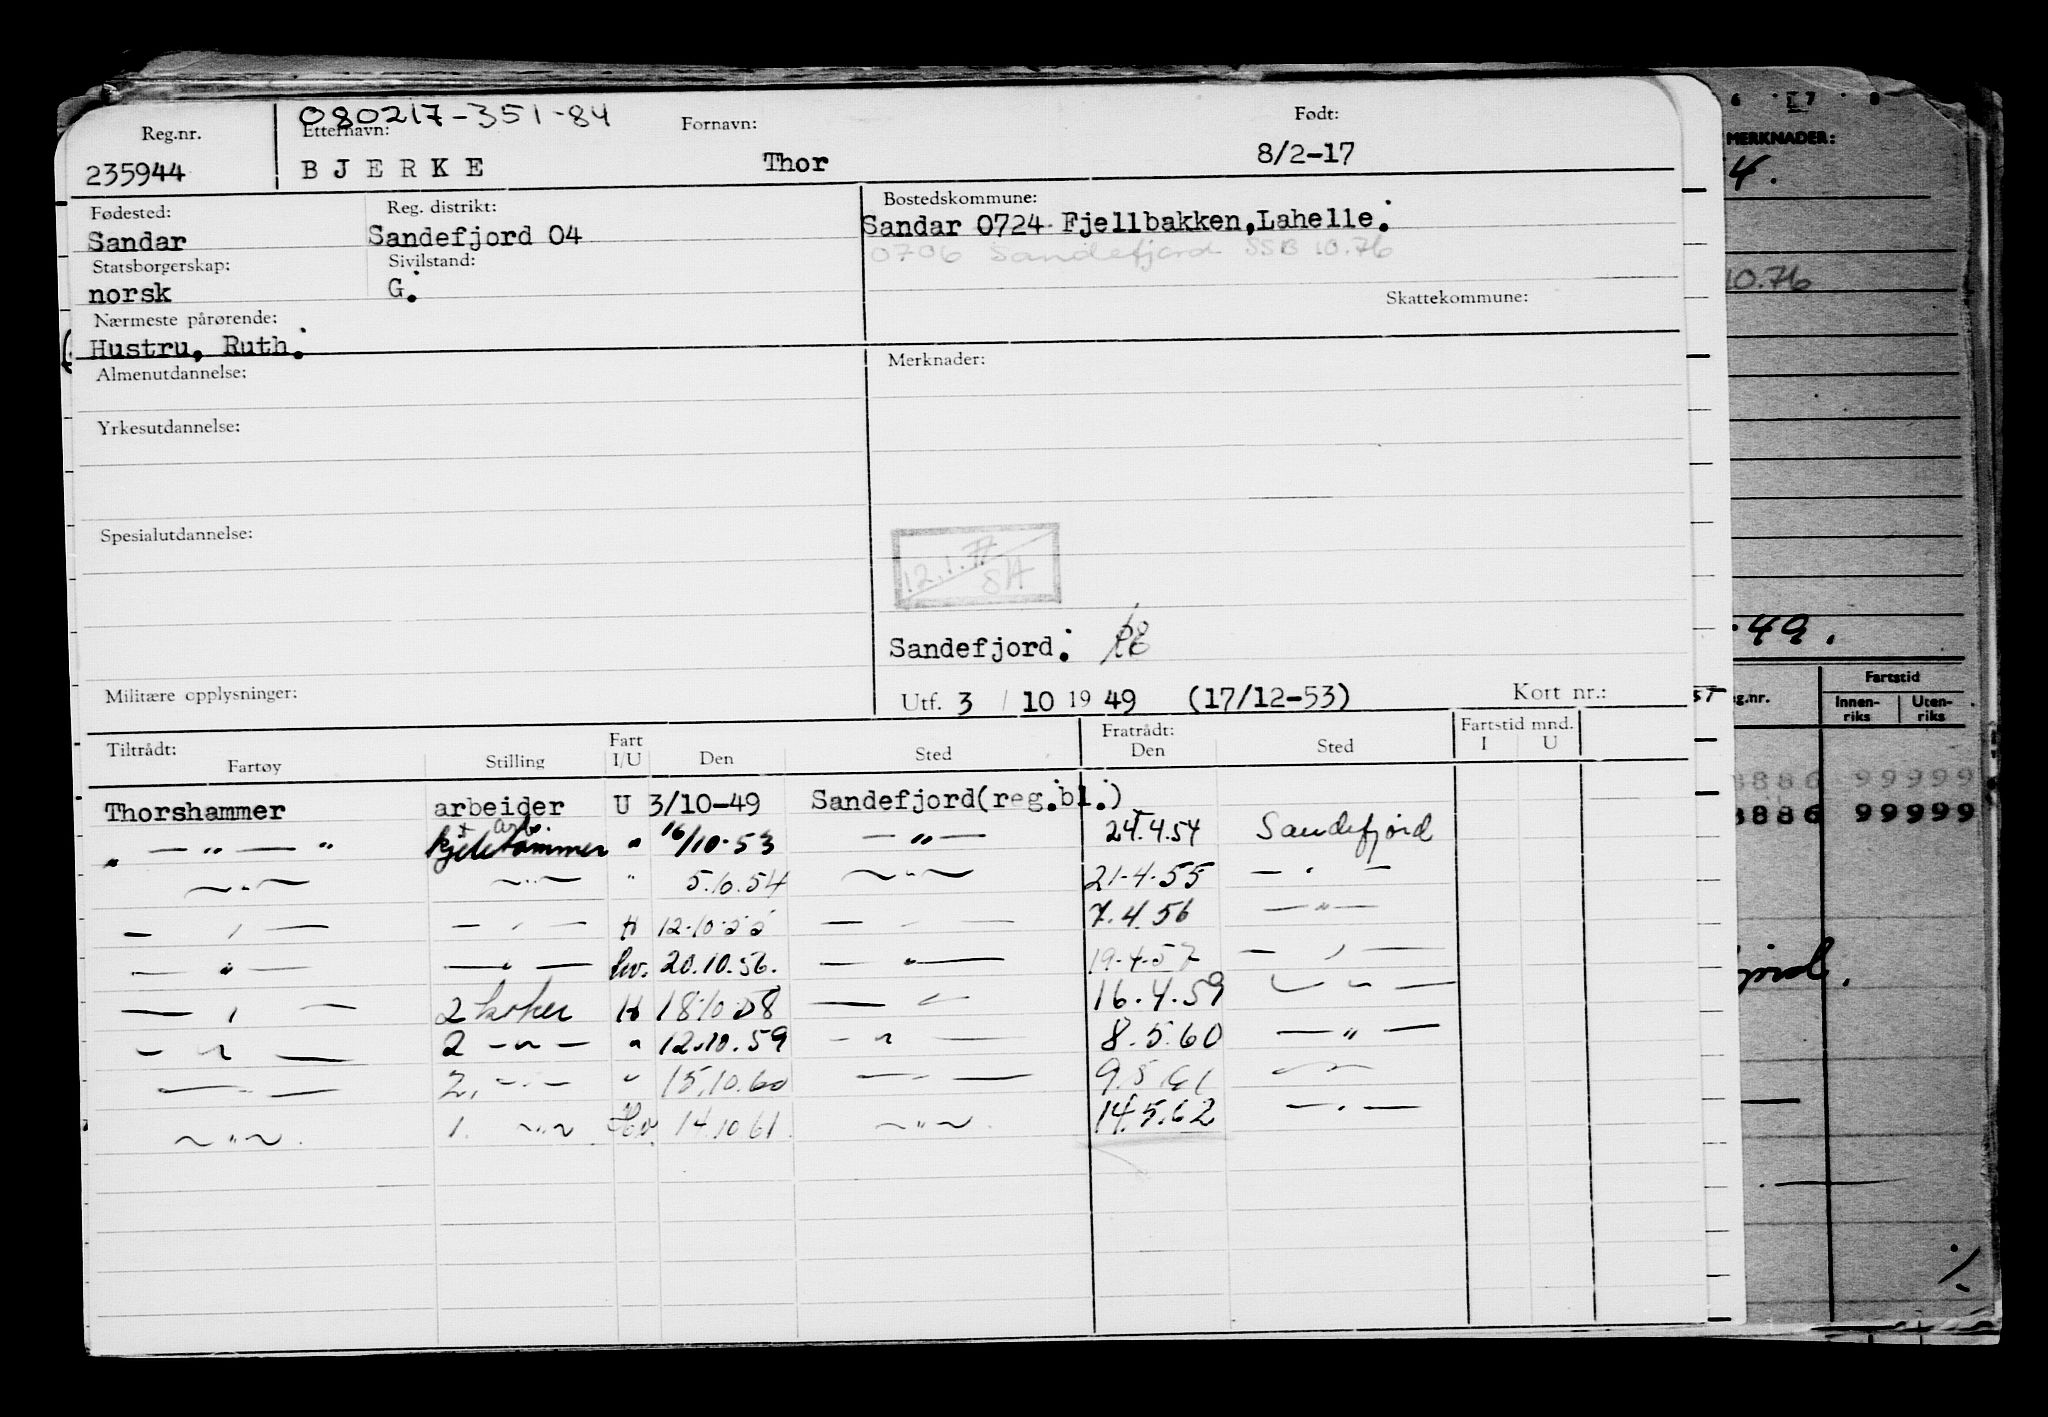 080217-351-84
Reg.nr. Etternavn: Fornavn: Født:
235944 BJERKE Thor 8/2-17
Fødested: Reg. distrikt: Bostedskommune:
Sandar Sandefjord 04 Sandar 0724 Fjellbakken, Lahelle.
Statsborgerskap: Sivilstand: 0706 Sandefjord SSB 10.76
norsk G. Skattekommune:
Nærmeste pårørende:
Hustru, Ruth.
Almenutdannelse: Merknader:
Yrkesutdannelse:
Spesialutdannelse:
12.1.77
SH
Sandefjord.
Militære opplysninger: Utf. 3 / 10 19 49 (17/12-53) Kort nr.:
Tiltrådt: Fart Fratrådt: Fartstid mnd.
Fartøy Stilling I/U Den Sted Den Sted I U
Thorshammer arbeider U 3/10-49 Sandefjord(reg.bl.)
" — " — " kjeletømmer + arb. " 16/10-53 — " — 24.4.54 Sandefjord
— " — — " — " 5.10.54 — " — 21-4-55 — " —
— " — — " — H 12-10-55 — " — 7.4.56 — " —
— " — — " — hv. 20.10.56. — " — 19-4-57 — " —
— " — 2 koker H 18.10.58 — " — 16.4.59 — " —
— " — 2 — " — " 12.10.59 — " — 8.5.60 — " —
— " — 2. — " — " 15.10.60 — " — 9.5.61 — " —
— " — 1. — " — Hv. 14.10 61. — " — 14.5.62 — " —
6 17 8
MERKNADER:
4.
10.76
49.
g.nr. Fartstid
Innen-riks Uten-riks
8886 99999
8886 99999
fjord.